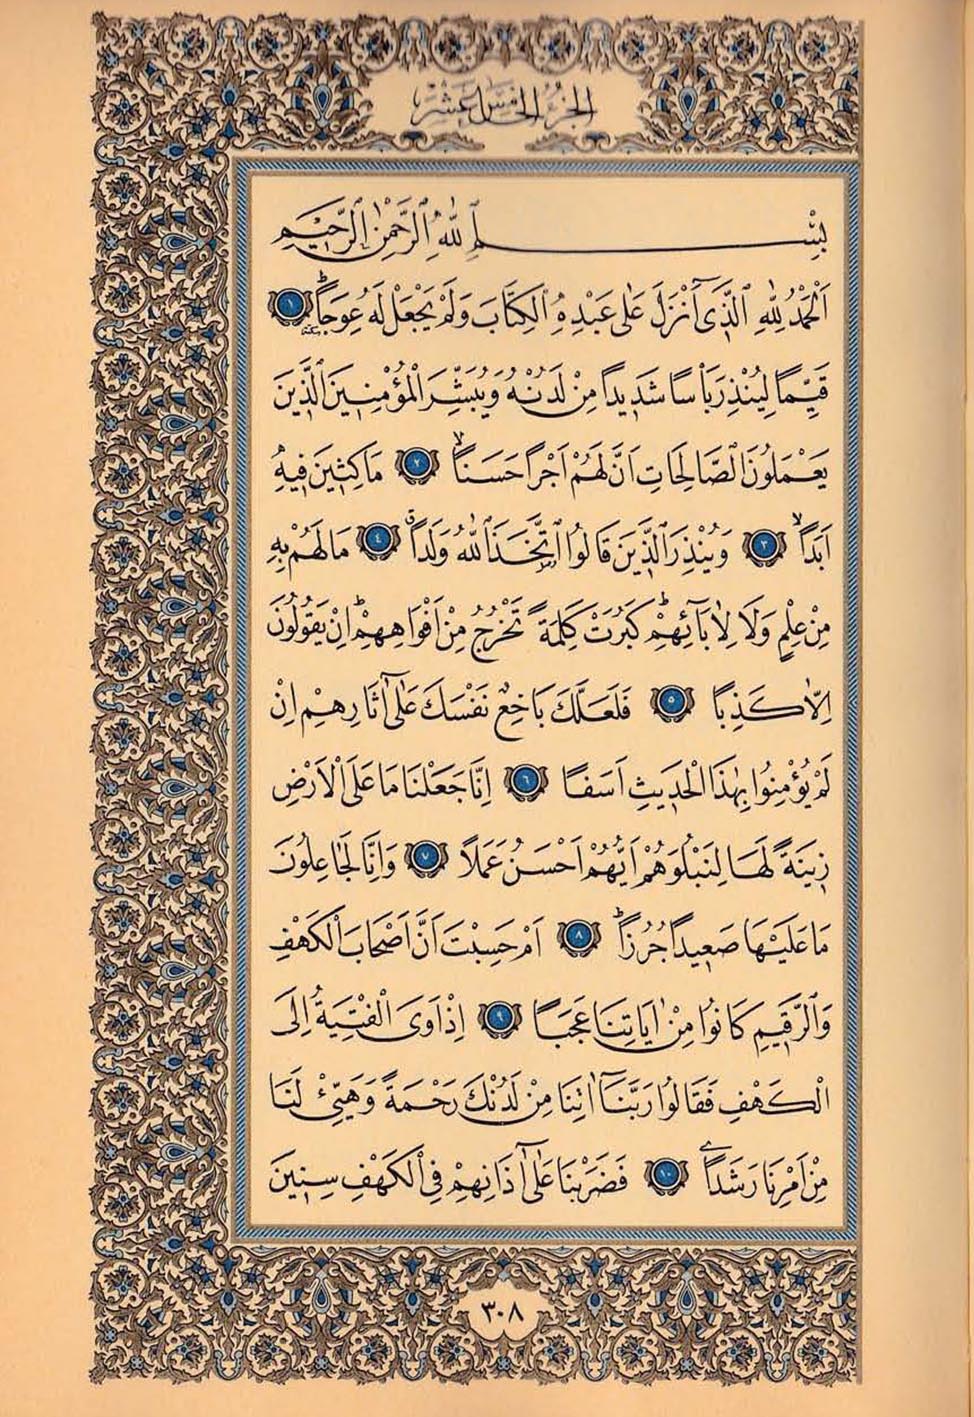 الجزء الخامس عشر
بِسْمِ اللّٰهِ الرَّحْمٰنِ الرَّحِيمِ
اَلْحَمْدُ لِلّٰهِ الَّذَٓى اَنْزَلَ عَلٰى عَبْدِهِ الْكِتَابَ وَلَمْ يَجْعَلْ لَهُ عِوَجًاۜ ﴿١﴾
قَيِّمًا لِيُنْذِرَ بَاْسًا شَدِيدًا مِنْ لَدُنْهُ وَيُبَشِّرَ الْمُؤْمِنِينَ الَّذِينَ
يَعْمَلُونَ الصَّالِحَاتِ اَنَّ لَهُمْ اَجْرًا حَسَنًاۙ ﴿٢﴾ مَاكِثِينَ فِيهِ
اَبَدًاۙ ﴿٣﴾ وَيُنْذِرَ الَّذِينَ قَالُوا اتَّخَذَ اللّٰهُ وَلَدًاۗ ﴿٤﴾ مَا لَهُمْ بِهِ
مِنْ عِلْمٍ وَلَا لِاٰبَٓائِهِمْۜ كَبُرَتْ كَلِمَةً تَخْرُجُ مِنْ اَفْوَاهِهِمْۜ اِنْ يَقُولُونَ
اِلَّا كَذِبًا ﴿٥﴾ فَلَعَلَّكَ بَاخِعٌ نَفْسَكَ عَلٰٓى اٰثَارِهِمْ اِنْ
لَمْ يُؤْمِنُوا بِهٰذَا الْحَدِيثِ اَسَفًا ﴿٦﴾ اِنَّا جَعَلْنَا مَا عَلَى الْاَرْضِ
زِينَةً لَهَا لِنَبْلُوَهُمْ اَيُّهُمْ اَحْسَنُ عَمَلًا ﴿٧﴾ وَاِنَّا لَجَاعِلُونَ
مَا عَلَيْهَا صَعِيدًا جُرُزًاۜ ﴿٨﴾ اَمْ حَسِبْتَ اَنَّ اَصْحَابَ الْكَهْفِ
وَالرَّقِيمِ كَانُوا مِنْ اٰيَاتِنَا عَجَبًا ﴿٩﴾ اِذْ اَوَى الْفِتْيَةُ اِلَى
الْكَهْفِ فَقَالُوا رَبَّنَٓا اٰتِنَا مِنْ لَدُنْكَ رَحْمَةً وَهَيِّئْ لَنَا
مِنْ اَمْرِنَا رَشَدًا ﴿١٠﴾ فَضَرَبْنَا عَلٰٓى اٰذَانِهِمْ فِي الْكَهْفِ سِنِينَ
٣٠٨